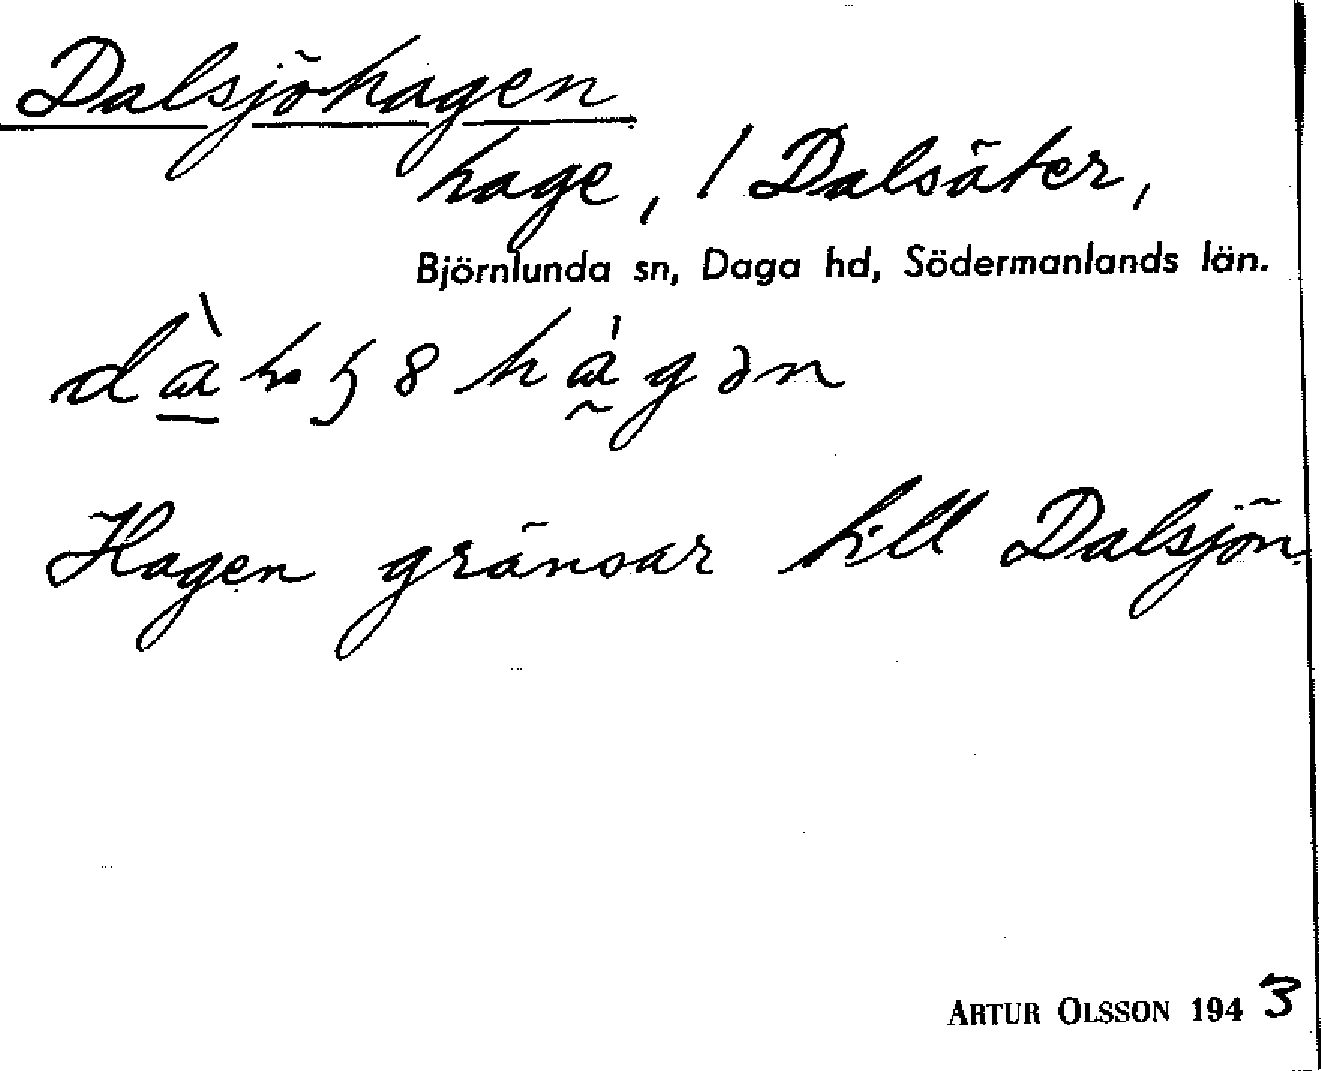 Dalsjöhagen
hage, / Dalsäter,
Björnlunda sn, Daga hd, Södermanlands län.
Hagen gränsar till Dalsjön.
ARTUR OLSSON 1943